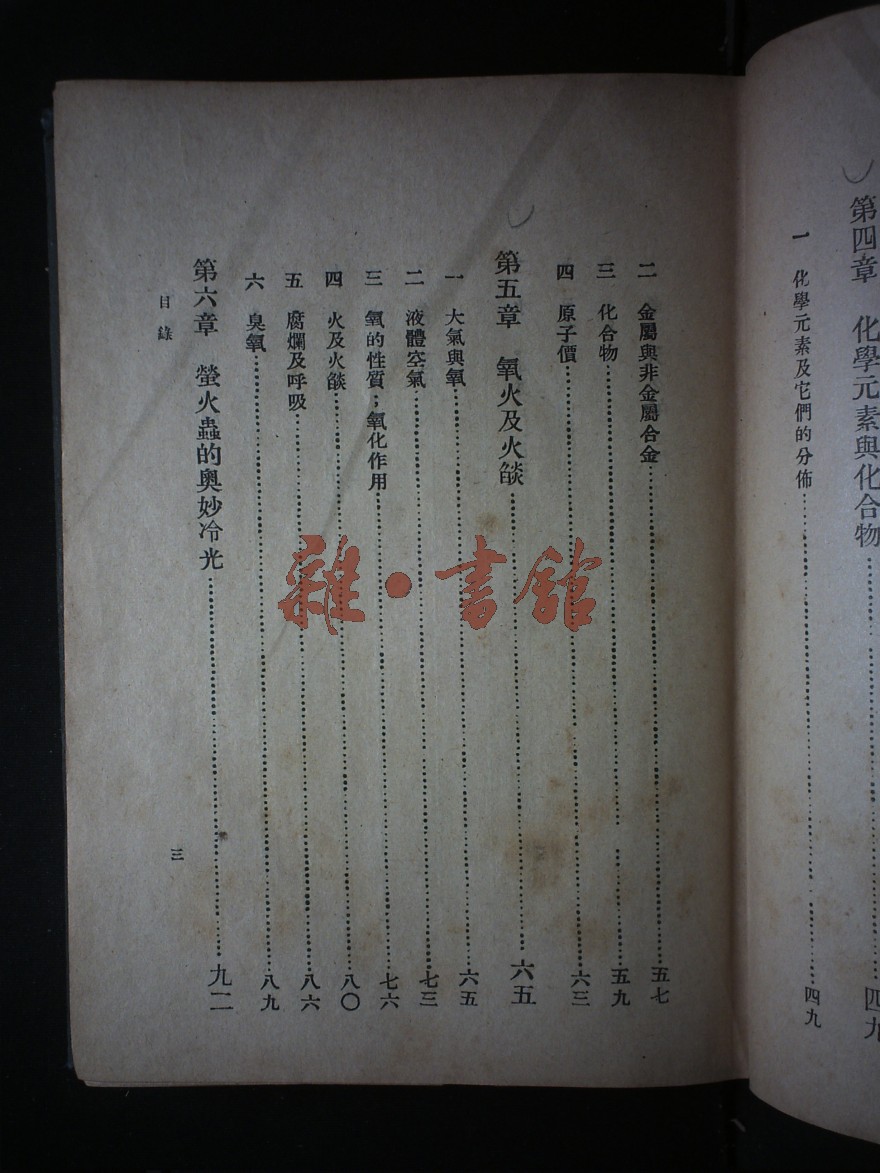 第四章　化學元素與化合物……四九
一　化學元素及它們的分佈……四九
二　金屬與非金屬合金……五七
三　化合物……五九
四　原子價……六三
第五章　氧火及火燄……六五
一　大氣與氧……六五
二　液體空氣……七三
三　氧的性質；氧化作用……七六
四　火及火燄……八〇
五　腐爛及呼吸……八六
六　臭氧……八九
第六章　螢火蟲的奧妙冷光……九二
目錄　三
雜·書館